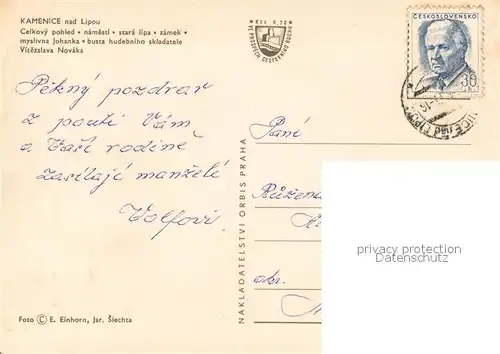 KAMENICE nad Lipou
Celkový pohled • náměstí • stará lípa • zámek •
myslivna Johanka • busta hudebního skladatele
Vítězslava Nováka
Pěkný pozdrav
z pouti Vám
a Vaší rodině
zasílají manželé
Wolfovi
Foto © E. Einhorn, Jar. Šlechta
NAKLADATELSTVÍ ORBIS PRAHA
KČS 0,20
VE PROSPĚCH CESTOVNÍHO RUCHU
ČESKOSLOVENSKO
30
Paní
Růžena
okr.
privacy protection
watermark